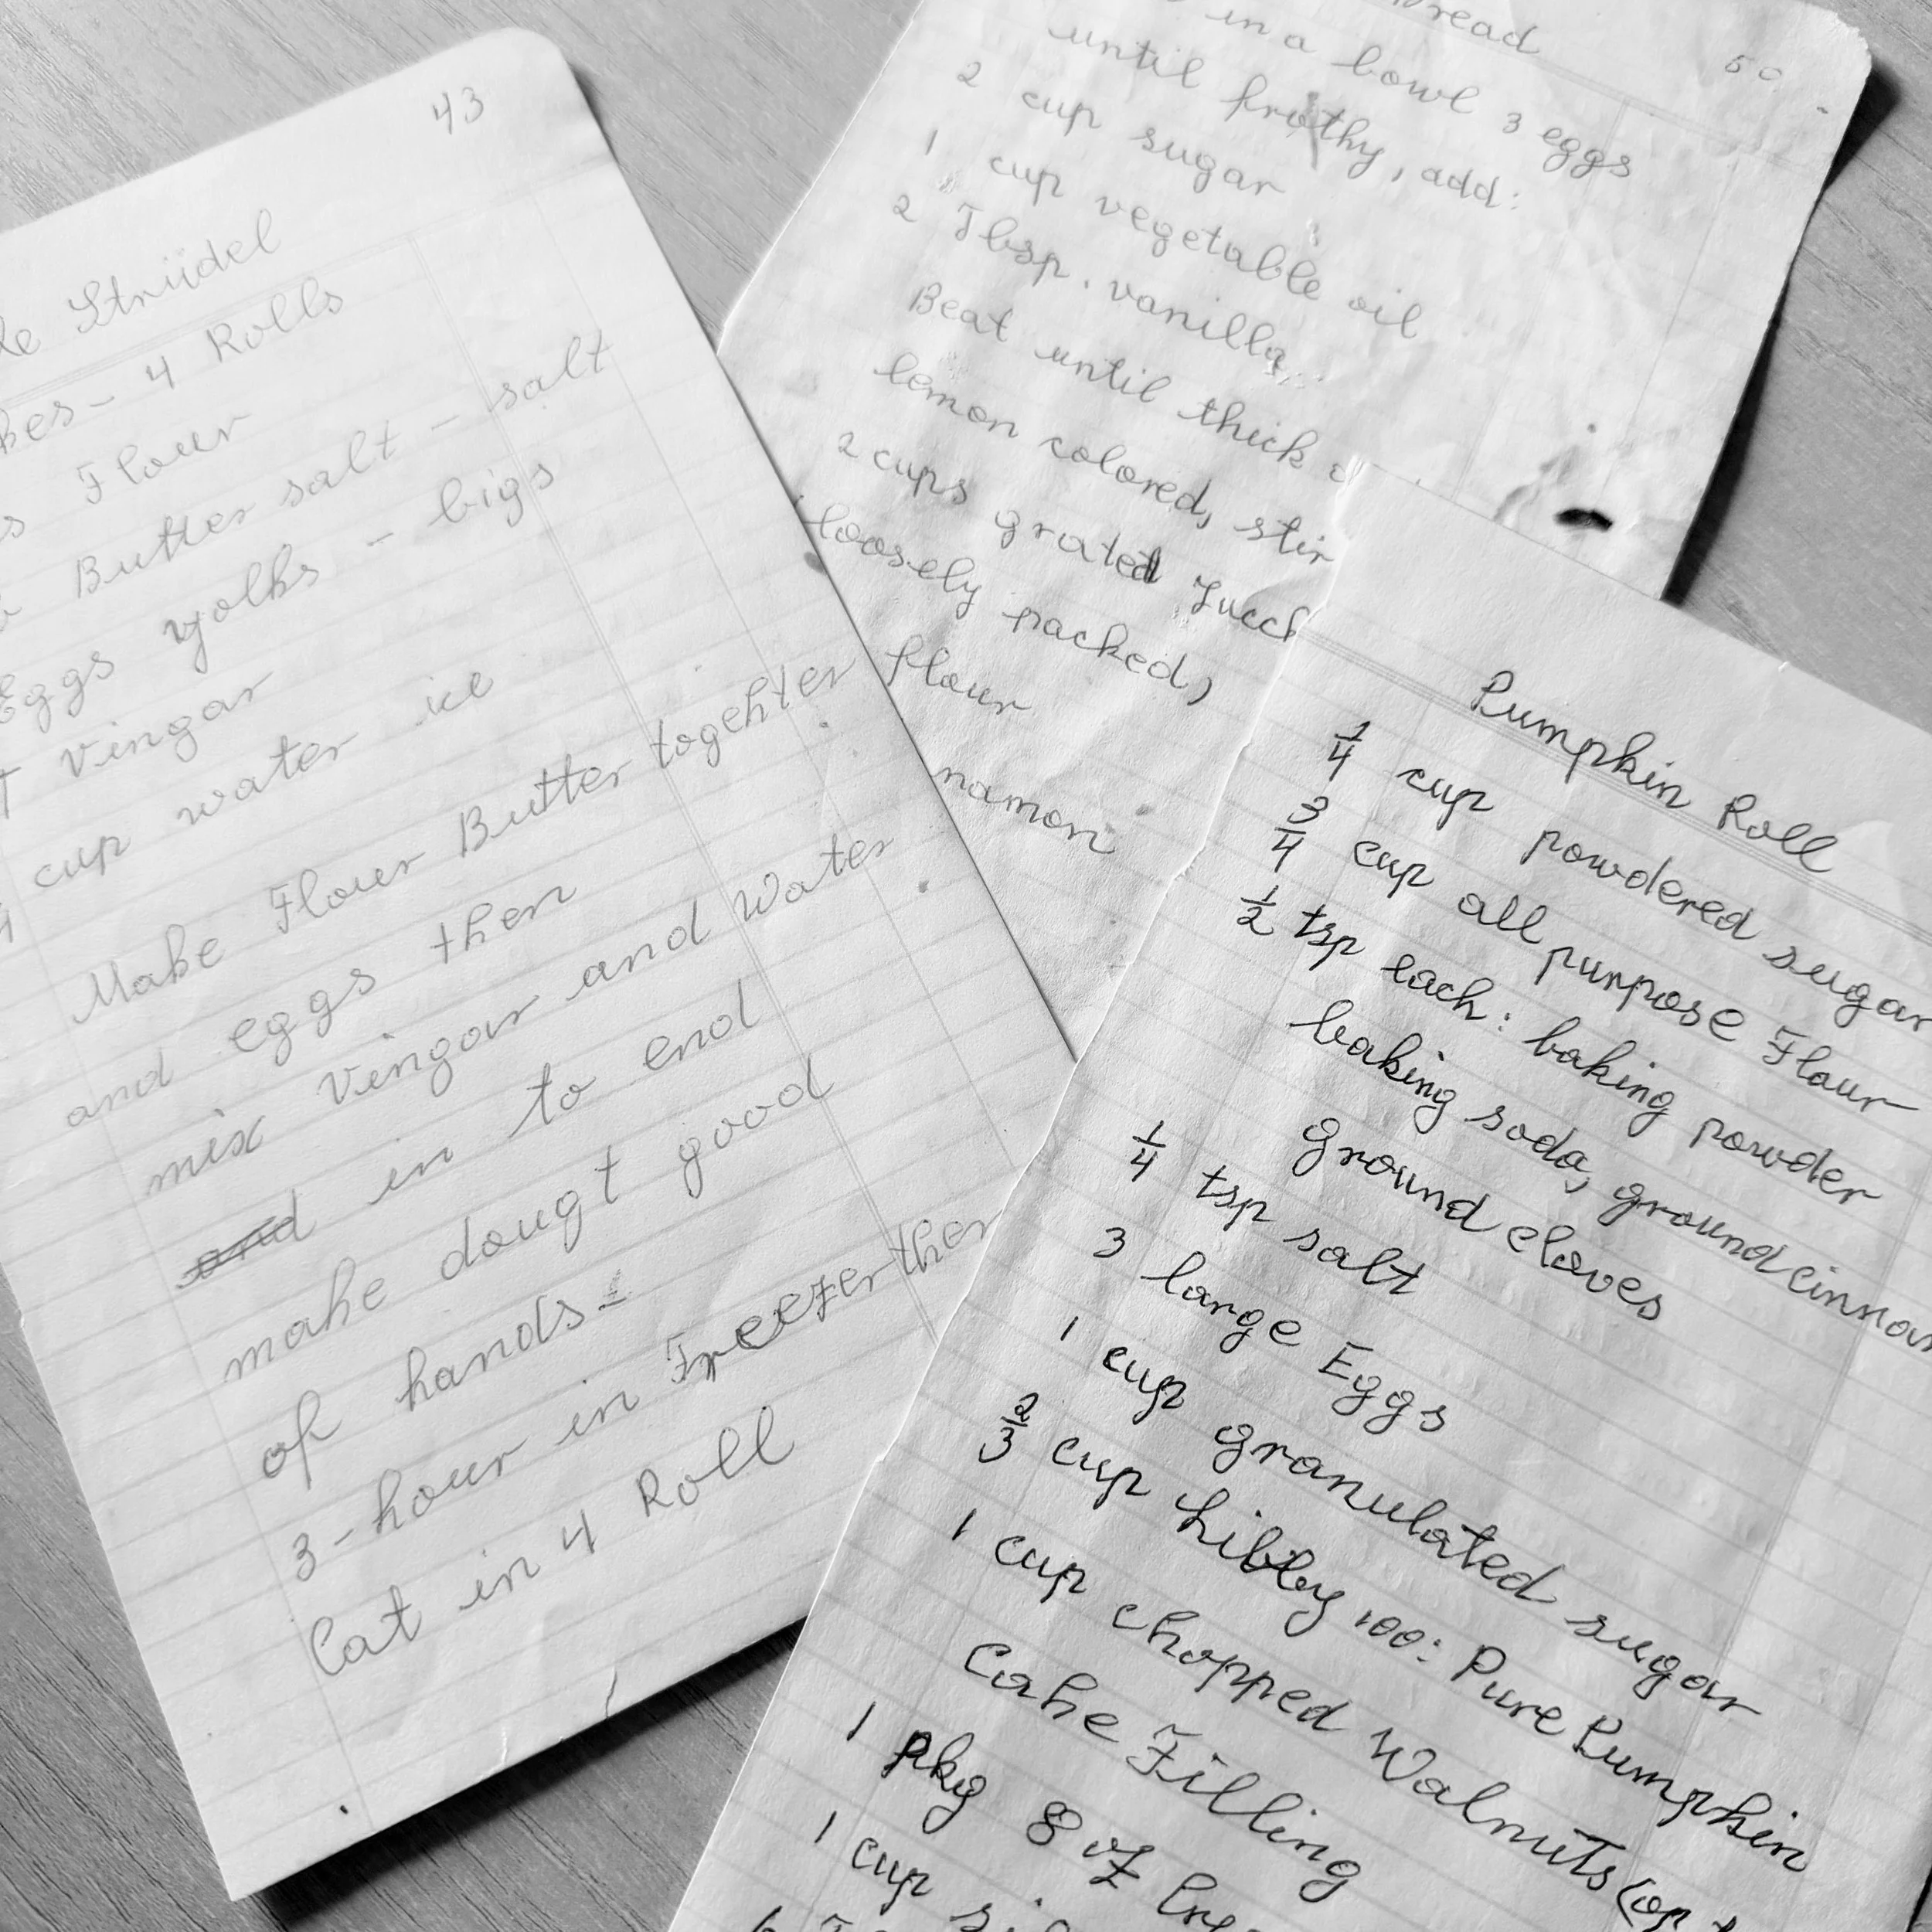 43
Strüdel
4 Rolls
Flour
Butter salt - salt
Eggs yolks - bigs
Vingar
cup water ice
Make Flour Butter togehter
and eggs then
mix Vingar and Water
and in to end
make dougt good
of hands -
3-hour in Freezer then
Cat in 4 Roll
50
in a bowl 3 eggs
until frothy, add:
2 cup sugar
1 cup vegetable oil
2 Tbsp. vanilla
Beat until thick
lemon colored, stir
2 cups grated
loosely packed)
flour
Pumpkin Roll
1/4 cup powdered sugar
3/4 cup all purpose Flour
1/2 tsp each: baking powder
baking soda, ground
ground cloves
1/4 tsp salt
3 large Eggs
1 cup granulated sugar
2/3 cup Libby 100: Pure Pumpkin
1 cup chopped Walnuts
Cake Filling
1 pkg 8 oz
1 cup